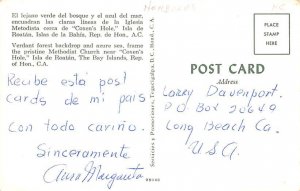 HONDURAS
El lejano verde del bosque y el azul del mar,
encuadran las claras líneas de la Iglesia
Metodista cerca de "Coxen's Hole," Isla de
Roatán, Islas de la Bahía, Rep. de Hon., C.A.
Verdant forest backdrop and azure sea, frame
the pristine Methodist Church near "Coxen's
Hole," Isla de Roatán, The Bay Islands, Rep.
of Hon., C.A.
Recibe está post
cards de mi país
con todo cariño.
Sinceramente
Aura Margarita
Servicios y Promociones, Tegucigalpa, D.C., Hond., C.A.
PLACE
STAMP
HERE
POST CARD
Address
Larry Davenport.
PO Box 20649
Long Beach Ca.
USA.